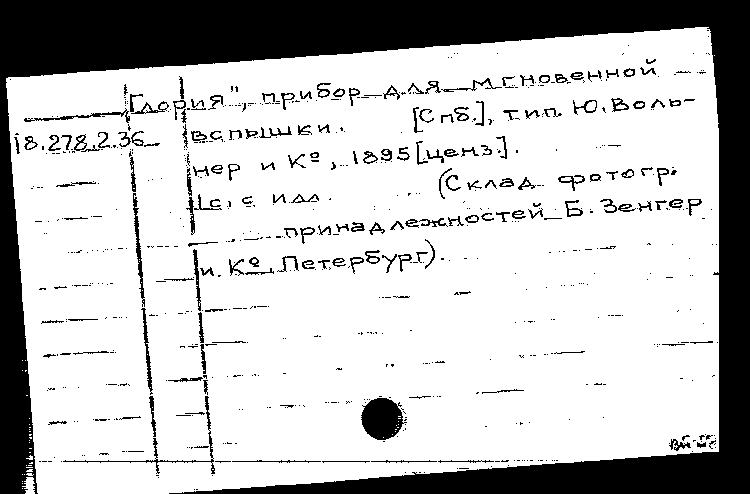 „Глория", прибор для мгновенной
18.278.2.36 вспышки. [Спб.], тип. Ю. Воль-
нер и Кº, 1895 [ценз.].
1 с. с илл. (Склад фотогр.
принадлежностей Б. Зенгер
и Кº, Петербург).